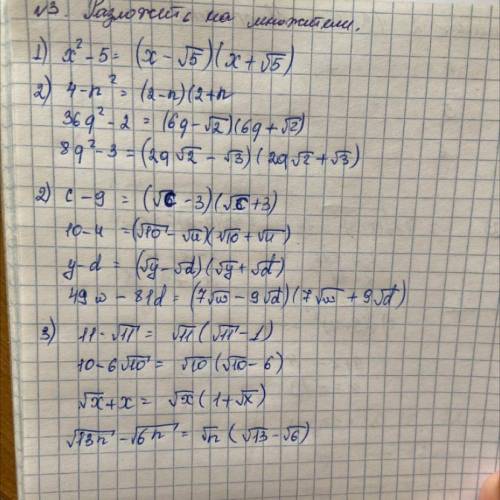 √3. Разложить на множители.
1) x² - 5 = (x - √5)(x + √5)
2) 4 - n² = (2 - n)(2 + n
36q² - 2 = (6q - √2)(6q + √2)
8q² - 3 = (2q√2 - √3)(2q√2 + √3)
2) c - 9 = (√c - 3)(√c + 3)
10 - u = (√10 - √u)(√10 + √u)
y - d = (√y - √d)(√y + √d)
49w - 81d = (7√w - 9√d)(7√w + 9√d)
3) 11 - √11 = √11(√11 - 1)
10 - 6√10 = √10(√10 - 6)
√x + x = √x(1 + √x)
√13n - √6n = √n(√13 - √6)